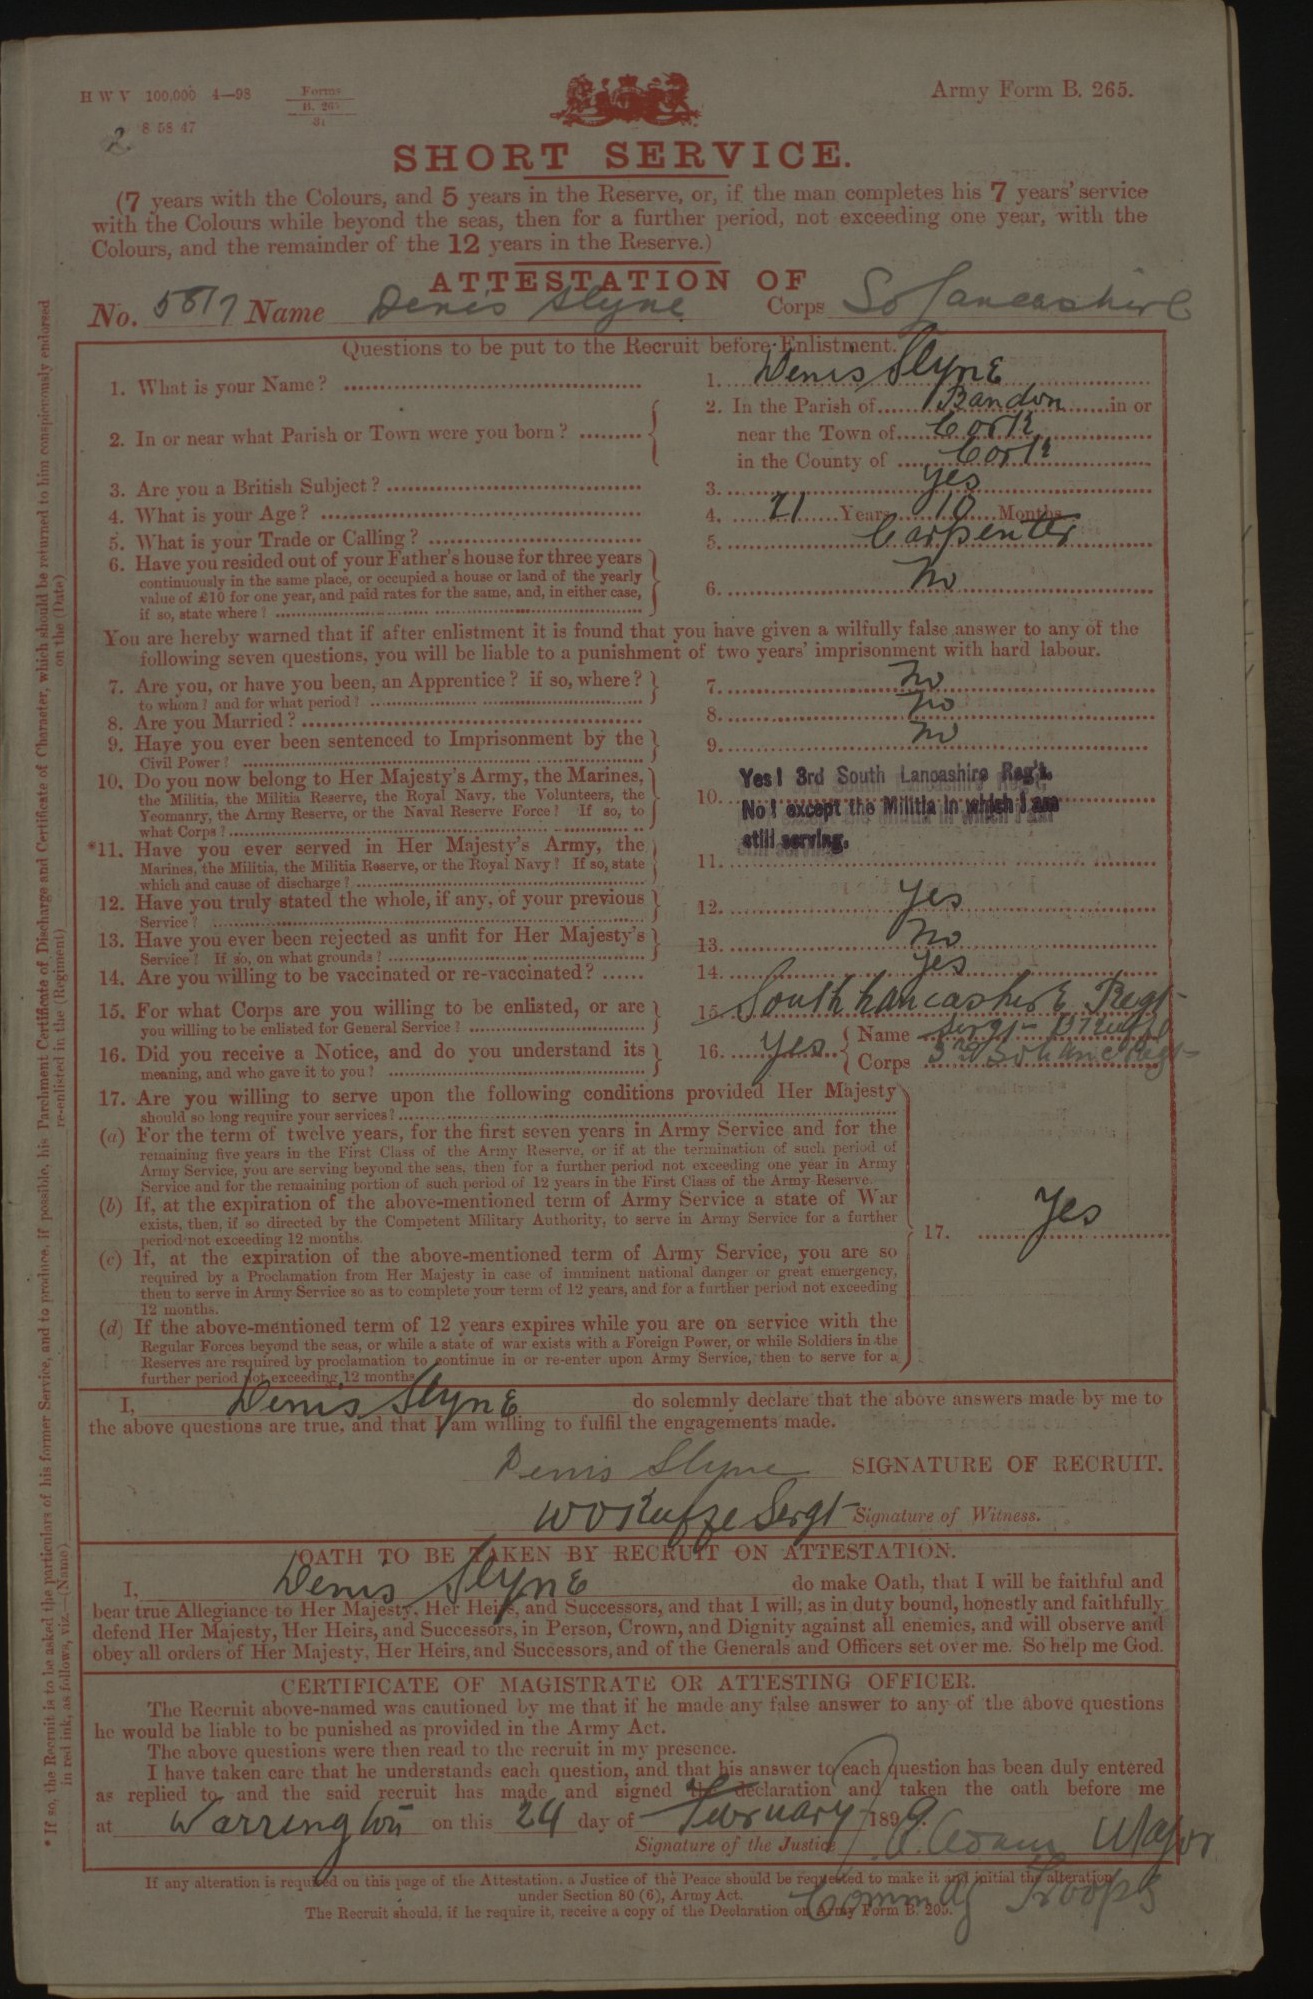 H W V 100,000 4—98 Forms
B. 265
31
Army Form B. 265.
2 8 58 47
SHORT SERVICE.
(7 years with the Colours, and 5 years in the Reserve, or, if the man completes his 7 years' service
with the Colours while beyond the seas, then for a further period, not exceeding one year, with the
Colours, and the remainder of the 12 years in the Reserve.)
ATTESTATION OF
No. 5817 Name Denis Slyne Corps So Lancashire
Questions to be put to the Recruit before Enlistment.
1. What is your Name? 1. Denis Slyne
2. In or near what Parish or Town were you born? 2. In the Parish of Bandon in or
near the Town of Cork
in the County of Cork
3. Are you a British Subject? 3. Yes
4. What is your Age? 4. 21 Years 10 Months
5. What is your Trade or Calling? 5. Carpenter
6. Have you resided out of your Father's house for three years
continuously in the same place, or occupied a house or land of the yearly
value of £10 for one year, and paid rates for the same, and, in either case,
if so, state where? 6. No
You are hereby warned that if after enlistment it is found that you have given a wilfully false answer to any of the
following seven questions, you will be liable to a punishment of two years' imprisonment with hard labour.
7. Are you, or have you been, an Apprentice? if so, where?
to whom? and for what period? 7. No
8. Are you Married? 8. No
9. Have you ever been sentenced to Imprisonment by the
Civil Power? 9. No
10. Do you now belong to Her Majesty's Army, the Marines,
the Militia, the Militia Reserve, the Royal Navy, the Volunteers, the
Yeomanry, the Army Reserve, or the Naval Reserve Force? If so, to
what Corps? 10. Yes! 3rd South Lancashire Reg't.
No! except the Militia in which I am
still serving.
*11. Have you ever served in Her Majesty's Army, the
Marines, the Militia, the Militia Reserve, or the Royal Navy? If so, state
which and cause of discharge? 11.
12. Have you truly stated the whole, if any, of your previous
Service? 12. Yes
13. Have you ever been rejected as unfit for Her Majesty's
Service? If so, on what grounds? 13. No
14. Are you willing to be vaccinated or re-vaccinated? 14. Yes
15. For what Corps are you willing to be enlisted, or are
you willing to be enlisted for General Service? 15 South Lancashire Regt
16. Did you receive a Notice, and do you understand its
meaning, and who gave it to you? 16. Yes Name Sergt
Corps 3rd So Lanc Regt
17. Are you willing to serve upon the following conditions provided Her Majesty
should so long require your services?
(a) For the term of twelve years, for the first seven years in Army Service and for the
remaining five years in the First Class of the Army Reserve, or if at the termination of such period of
Army Service, you are serving beyond the seas, then for a further period not exceeding one year in Army
Service and for the remaining portion of such period of 12 years in the First Class of the Army Reserve.
(b) If, at the expiration of the above-mentioned term of Army Service a state of War
exists, then, if so directed by the Competent Military Authority, to serve in Army Service for a further
period not exceeding 12 months.
17. Yes
(c) If, at the expiration of the above-mentioned term of Army Service, you are so
required by a Proclamation from Her Majesty in case of imminent national danger or great emergency,
then to serve in Army Service so as to complete your term of 12 years, and for a further period not exceeding
12 months.
(d) If the above-mentioned term of 12 years expires while you are on service with the
Regular Forces beyond the seas, or while a state of war exists with a Foreign Power, or while Soldiers in the
Reserves are required by proclamation to continue in or re-enter upon Army Service, then to serve for a
further period not exceeding 12 months.
I, Denis Slyne do solemnly declare that the above answers made by me to
the above questions are true, and that I am willing to fulfil the engagements made.
Denis Slyne SIGNATURE OF RECRUIT.
Sergt Signature of Witness.
OATH TO BE TAKEN BY RECRUIT ON ATTESTATION.
I, Denis Slyne do make Oath, that I will be faithful and
bear true Allegiance to Her Majesty, Her Heirs, and Successors, and that I will, as in duty bound, honestly and faithfully
defend Her Majesty, Her Heirs, and Successors, in Person, Crown, and Dignity against all enemies, and will observe and
obey all orders of Her Majesty, Her Heirs, and Successors, and of the Generals and Officers set over me. So help me God.
CERTIFICATE OF MAGISTRATE OR ATTESTING OFFICER.
The Recruit above-named was cautioned by me that if he made any false answer to any of the above questions
he would be liable to be punished as provided in the Army Act.
The above questions were then read to the recruit in my presence.
I have taken care that he understands each question, and that his answer to each question has been duly entered
as replied to, and the said recruit has made and signed the declaration and taken the oath before me
at Warrington on this 24 day of February 1899.
Signature of the Justice Major
Commdg Troops
If any alteration is required on this page of the Attestation, a Justice of the Peace should be requested to make it and initial the alteration
under Section 80 (6), Army Act.
The Recruit should, if he require it, receive a copy of the Declaration on Army Form B. 205.
* If so, the Recruit is to be asked the particulars of his former Service, and to produce, if possible, his Parchment Certificate of Discharge and Certificate of Character, which should be returned to him conspicuously endorsed
in red ink, as follows, viz.—(Name) re-enlisted in the (Regiment) on the (Date)